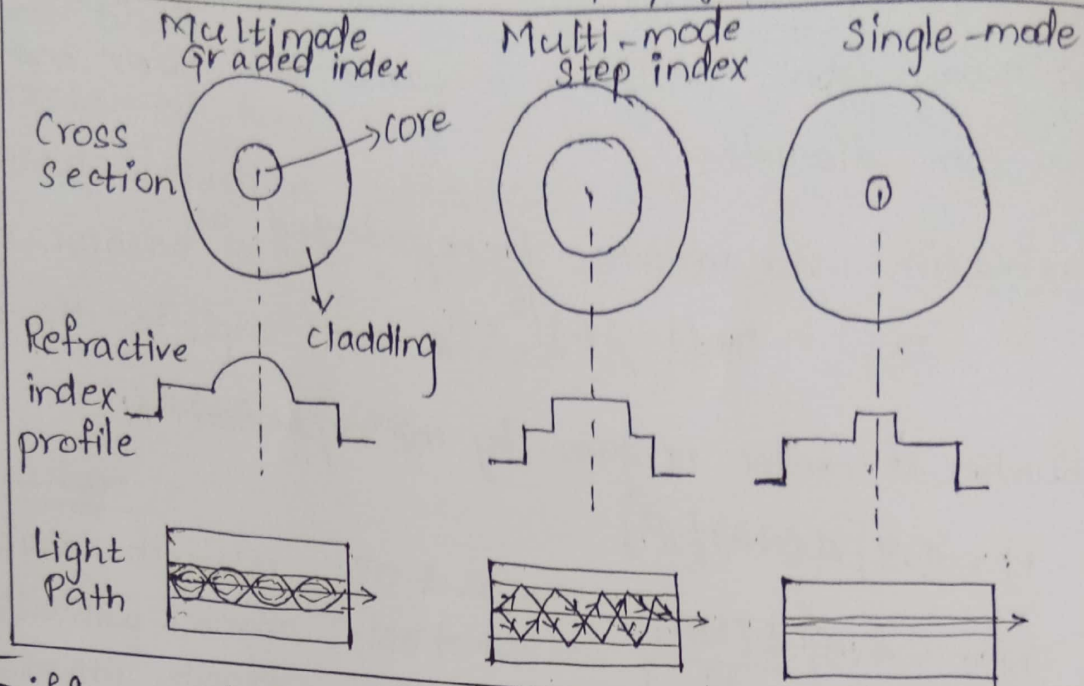 Multimode
Graded index
Multi-mode
step index
Single-mode
Cross
section
core
cladding
Refractive
index
profile
Light
Path